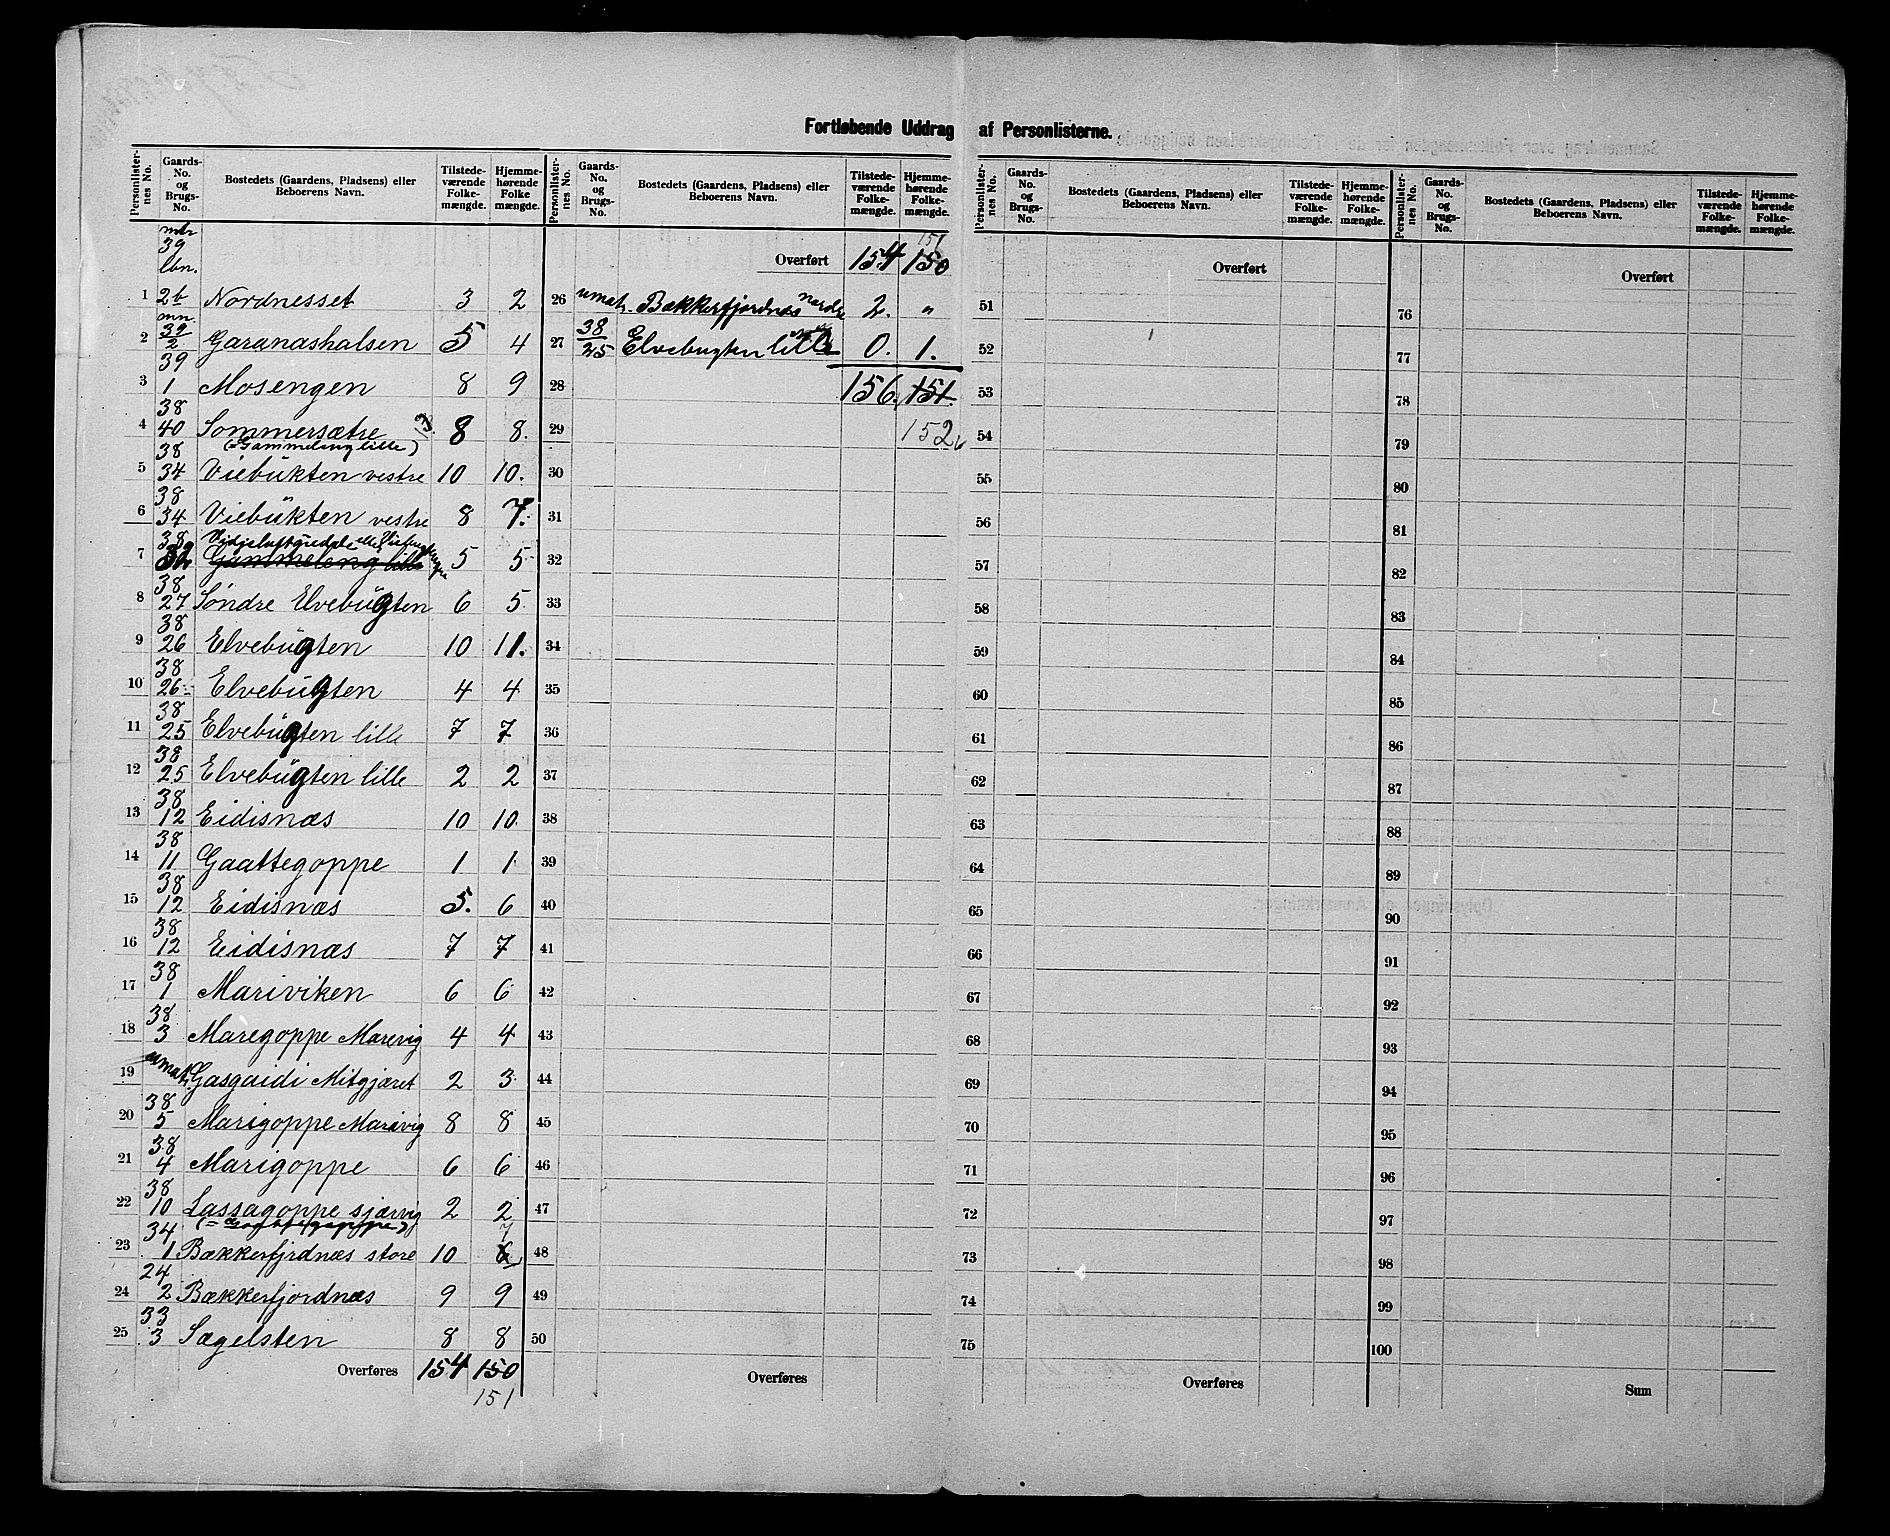 Fortløbende Uddrag af Personlisterne.
Personlisternes No. Gaards-No. og Brugs-No. Bostedets (Gaardens, Pladsens) eller Beboerens Navn. Tilstedeværende Folkemængde. Hjemmehørende Folkemængde.
Personlisternes No. Gaards-No. og Brugs-No. Bostedets (Gaardens, Pladsens) eller Beboerens Navn. Tilstedeværende Folkemængde. Hjemmehørende Folkemængde.
Personlisternes No. Gaards-No. og Brugs-No. Bostedets (Gaardens, Pladsens) eller Beboerens Navn. Tilstedeværende Folkemængde. Hjemmehørende Folkemængde.
Personlisternes No. Gaards-No. og Brugs-No. Bostedets (Gaardens, Pladsens) eller Beboerens Navn. Tilstedeværende Folkemængde. Hjemmehørende Folkemængde.
39
lbn.
1 2b Nordnesset 3 2
2 39/2 Garanashalsen 5 4
3 39 1 Mosengen 8 9
4 38 40 Sommersætre 8 8.
(=Gammeleng lille)
5 38 34 Viebukten vestre 10 10.
6 38 34 Viebukten vestre 8 7.
7 38 32 Gammeleng lille 5 5
8 38 27 Søndre Elvebugten 6 5
9 38 26 Elvebugten 10 11.
10 38 26 Elvebugten 4 4
11 38 25 Elvebugten lille 7 7
12 38 25 Elvebugten lille 2 2
13 38 12 Eidisnæs 10 10.
14 38 11 Gaattegoppe 1 1
15 38 12 Eidisnæs 5. 6
16 38 12 Eidisnæs 7 7
17 38 1 Mariviken 6 6
18 38 3 Maregoppe Marevig 4 4
19 umatr. Gasgaidi Mitgjæret 2 3
20 38 5 Marigoppe Marivig 8 8
21 38 4 Marigoppe 6 6
22 38 10 Lassagoppe sjørvig 2 2
7
23 34 1 Bækkerfjrdnæs store 10 6
24 24 2 Bækkerfjordnæs 9 9
25 33 3 Sægelsten 8 8
Overføres 154 150
151
151
Overført 154 150
26 umatr. Bækkerfjordnæs nordre 2. "
27 38/25 Elvebugten lille 0. 1.
28 156. 151.
29 152
30
31
32
33
34
35
36
37
38
39
40
41
42
43
44
45
46
47
48
49
50
Overføres
Overført
51
52
53
54
55
56
57
58
59
60
61
62
63
64
65
66
67
68
69
70
71
72
73
74
75
Overføres
Overført
76
77
78
79
80
81
82
83
84
85
86
87
88
89
90
91
92
93
94
95
96
97
98
99
100
Sum